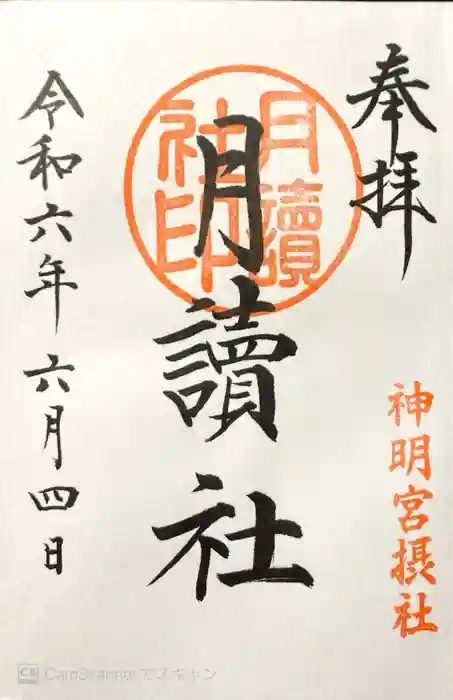 奉拝
神明宮摂社
月讀社
月讀
社印
令和六年六月四日
CS CamScannerでスキャン